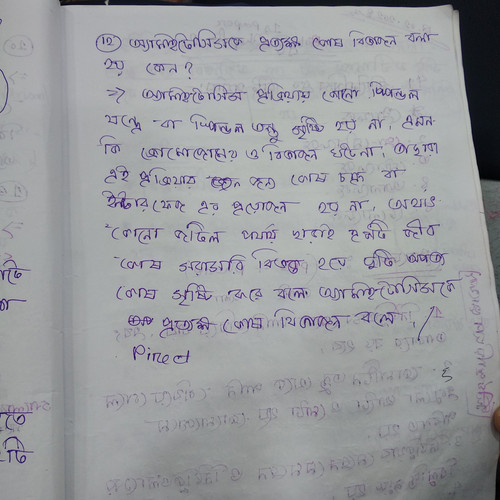 (12) অ্যামাইটোসিসকে প্রত্যক্ষ কোষ বিভাজন বলা
হয় কেন?
⇒ অ্যামাইটোসিস প্রক্রিয়ায় কোনো স্পিন্ডল
যন্ত্রে বা স্পিন্ডল তন্তু সৃষ্টি হয় না, এমন
কি ক্রোমোজোমের ও বিভাজন ঘটেনা, তাছাড়া
এই প্রক্রিয়ার জন্য কোষ চক্র বা
ইন্টারফেজ এর প্রয়োজন হয় না, অর্থাৎ
কোনো জটিল পর্যায় ছাড়াই একটি জীব
কোষ সরাসরি বিভক্ত হয়ে দুটি অপত্য
কোষ সৃষ্টি করে বলে অ্যামাইটোসিসকে
প্রত্যক্ষ কোষ বিভাজন বলে।
Direct